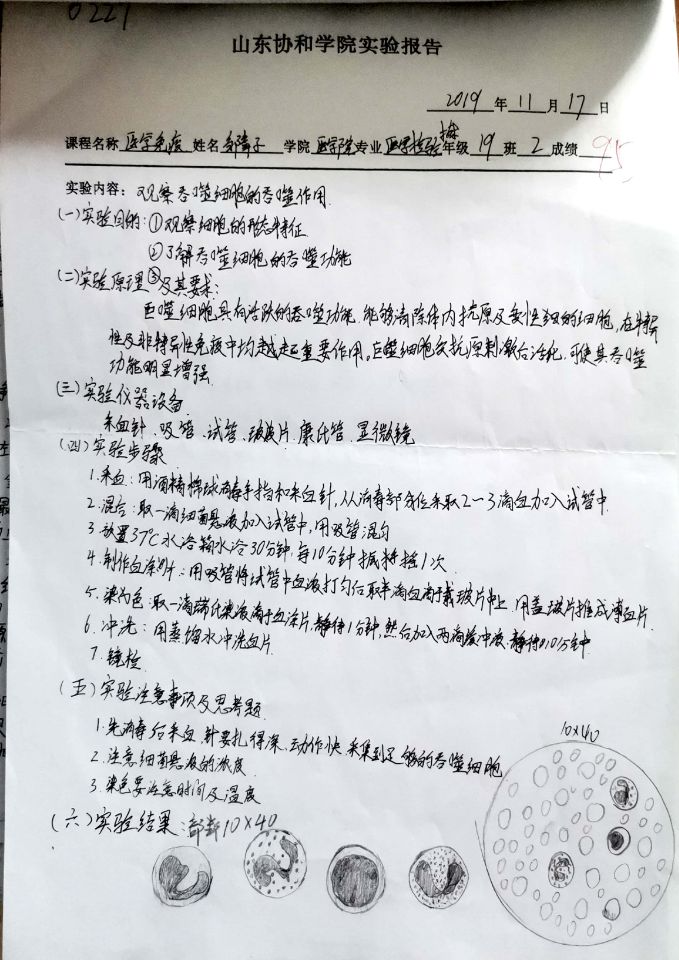 0221
山东协和学院实验报告
2019 年 11 月 17 日
课程名称 医学免疫 姓名 学院 医学院 专业 医学检验 年级 19 班 2 成绩 95
实验内容: 观察吞噬细胞的吞噬作用.
(一)实验目的:①观察细胞的形态特征
②了解吞噬细胞的吞噬功能
(二)实验原理及其要求:
巨噬细胞具有活跃的吞噬功能.能够清除体内抗原及变性的细胞,在特异
性及非特异性免疫中均起重要作用.巨噬细胞受抗原刺激后活化,可使其吞噬
功能明显增强.
(三)实验仪器设备
采血针、吸管、试管、玻片.康氏管.显微镜
(四)实验步骤
1.采血:用酒精棉球消毒手指和采血针,从消毒部位采取2~3滴血加入试管中.
2.混合:取一滴细菌悬液加入试管中,用吸管混匀
3.放置37℃水浴箱水浴30分钟,每10分钟振摇1次.
4.制作血涂片:用吸管将试管中血液打匀后取半滴血滴于载玻片上,用盖玻片推成薄血片.
5.染色:取一滴瑞氏染液滴于血涂片,静待1分钟,然后加入两滴缓冲液.静待10分钟
6.冲洗:用蒸馏水冲洗血片.
7.镜检
(五)实验注意事项及思考题.
1.先消毒后采血.针要扎得深.动作快.采集到足够的吞噬细胞
2.注意细菌悬液的浓度.
3.染色要注意时间及温度
(六)实验结果: 10×40
10×40